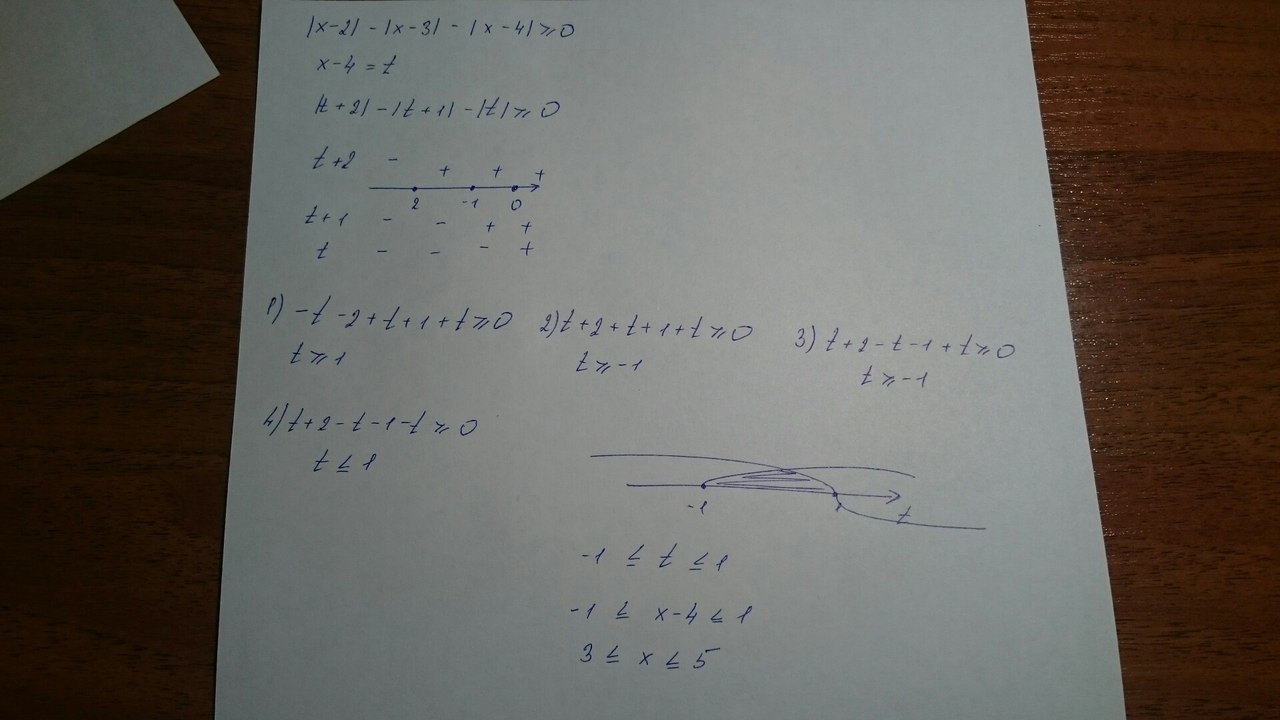 |x-2| - |x-3| - |x-4| ⩾ 0
x-4 = t
|t+2| - |t+1| - |t| ⩾ 0
t+2 - + + +
2 -1 0
t+1 - - + +
t - - - +
1) -t -2+t+1+t ⩾ 0 2) t+2+t+1+t ⩾ 0 3) t+2-t-1+t ⩾ 0
t ⩾ 1 t ⩾ -1 t ⩾ -1
4) t+2-t-1-t ⩾ 0
t ≤ 1
-1 1 t
-1 ≤ t ≤ 1
-1 ≤ x-4 ≤ 1
3 ≤ x ≤ 5